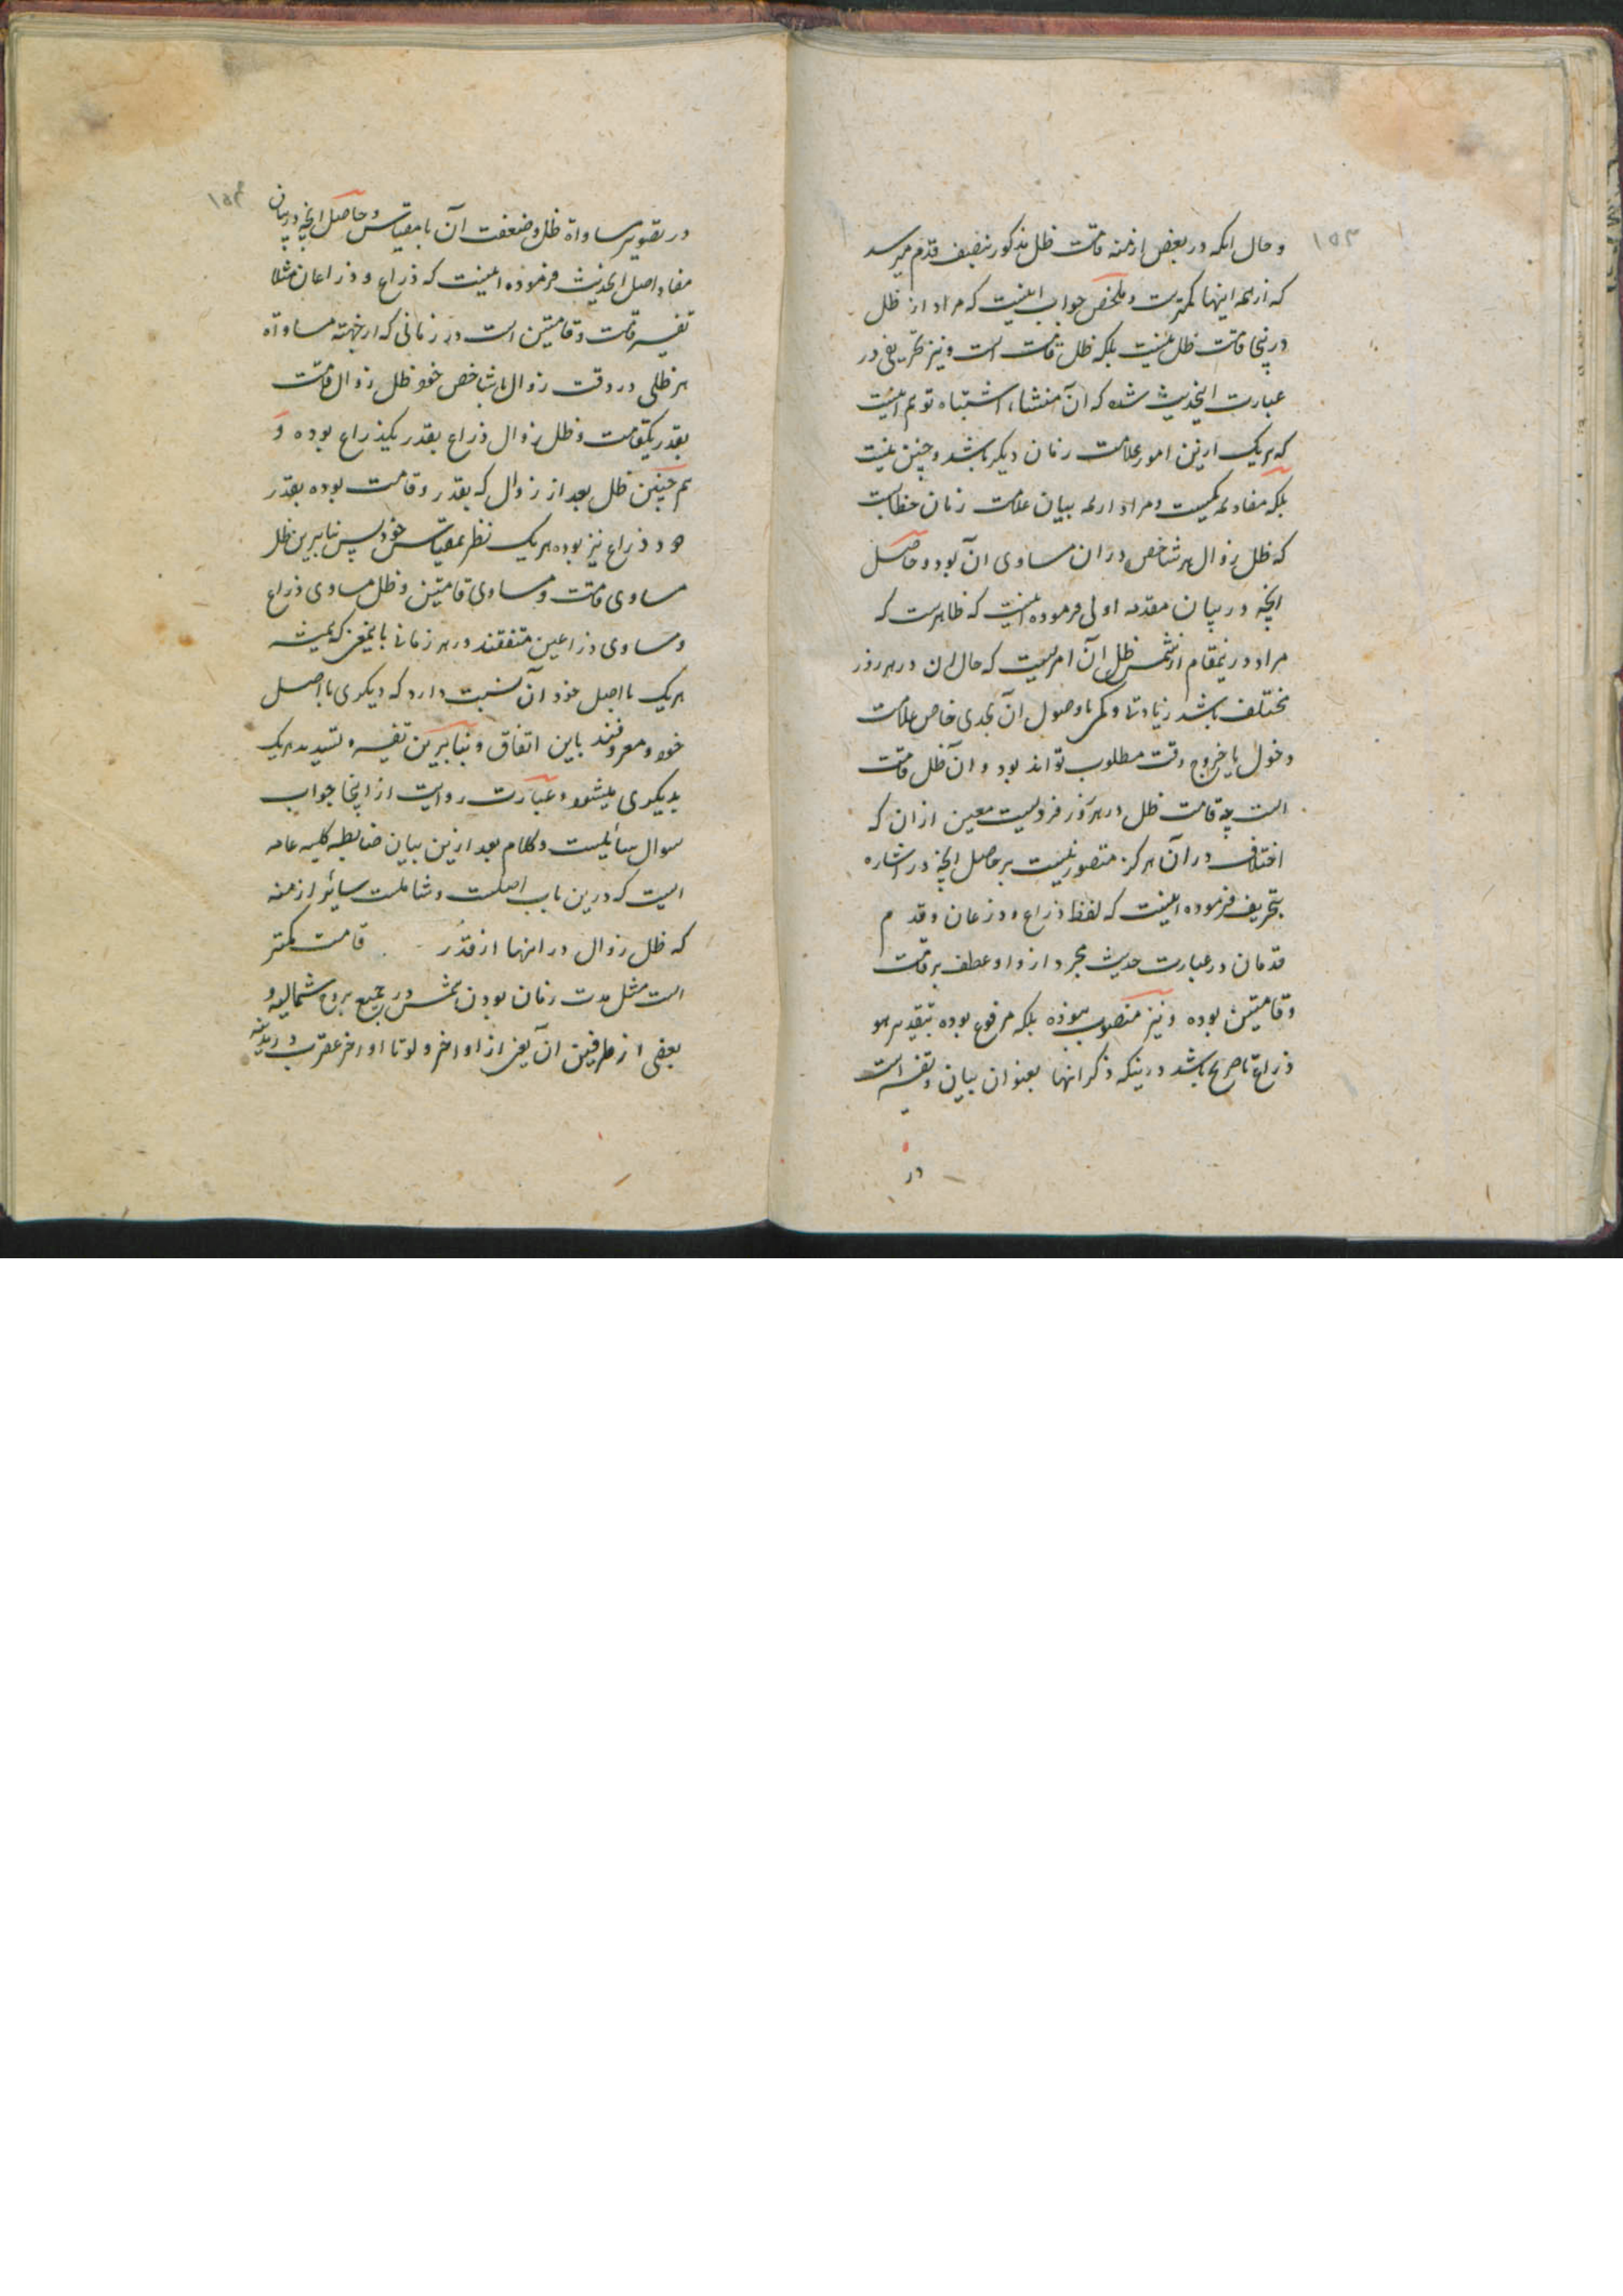 ۱۵۳
و حال انکه در بعض ازمنه قامت ظل مذکور بنصف قدم میرسد
که از همه اینها کمترست و ملخص جواب اینست که مراد از ظل
درینجا قامت ظل نیست بلکه ظل قامت است و نیز تحریفی در
عبارت اینحدیث شده که آن منشاء اشتباه توهم اینست
که هر یک ازین امور علامت زمان دیگر باشد و چنین نیست
بلکه مفاد همه یکیست و مراد از همه بیان علامت زمان خطابست
که ظل زوال هر شاخص دران مساوی آن بود و حاصل
انچه در بیان مقدمه اولی فرموده اینست که ظاهرست که
مراد درینمقام از شمس ظل آن امریست که حال ان در هر روز
مختلف باشد زیادتا و کمی تا وصول آن بحدی خاص علامت
دخول یا خروج وقت مطلوب تواند بود و ان ظل قامت
است چه قامت ظل در هر روز فردیست معین ازان که
اختلاف در آن هرگز متصور نیست بر حاصل انچه در اشاره
بتحریف فرموده اینست که لفظ ذراع و ذرعان و قدم
قدمان در عبارت حدیث مجرد از واو عطف بر قامت
و قامتین بوده و نیز منصوب نبوده بلکه مرفوع بوده بتقدیر هو
ذراع تا صریح باشد درینکه ذکر انها بعنوان بیان و تفسیر است
در
۱۵۴
در تصویر مساواة ظل و ضعف آن با مقیاس و حاصل انچه در بیان
مفاد اصل الحدیث فرموده اینست که ذراع و ذراعان مثلا
تفسیر قامت و قامتین است در زمانی که از جهته مساواة
هر ظلی در وقت زوال با شاخص خود ظل زوال قامت
بقدر یکقامت و ظل زوال ذراع بقدر یکذراع بوده و
هم چنین ظل بعد از زوال که بقدر دو قامت بوده بقدر
دو ذراع نیز بوده هر یک نظر بمقیاس خود پس بنابرین ظل
مساوی قامت و مساوی قامتین و ظل مساوی ذراع
و مساوی ذراعین متفقند در هر زمانی باینمعنی که همیشه
هر یک با اصل خود آن نسبت دارد که دیگری با اصل
خود و معروفند باین اتفاق و بنابرین تفسیر و تسدید هر یک
بدیگری میشود و عبارت روایت از اینجا جواب
سوال سائلیست و کلام بعد ازین بیان ضابطه کلیه عامه
ایست که درین باب اصلست و شاملست سائر ازمنه
که ظل زوال در انها از قدر قامت کمتر
است مثل مدت زمان بودن شمس در جمیع بروج شمالیه و
بعضی از طرفین آن یعنی از اواخر دلو تا اواخر عقرب در مدینه